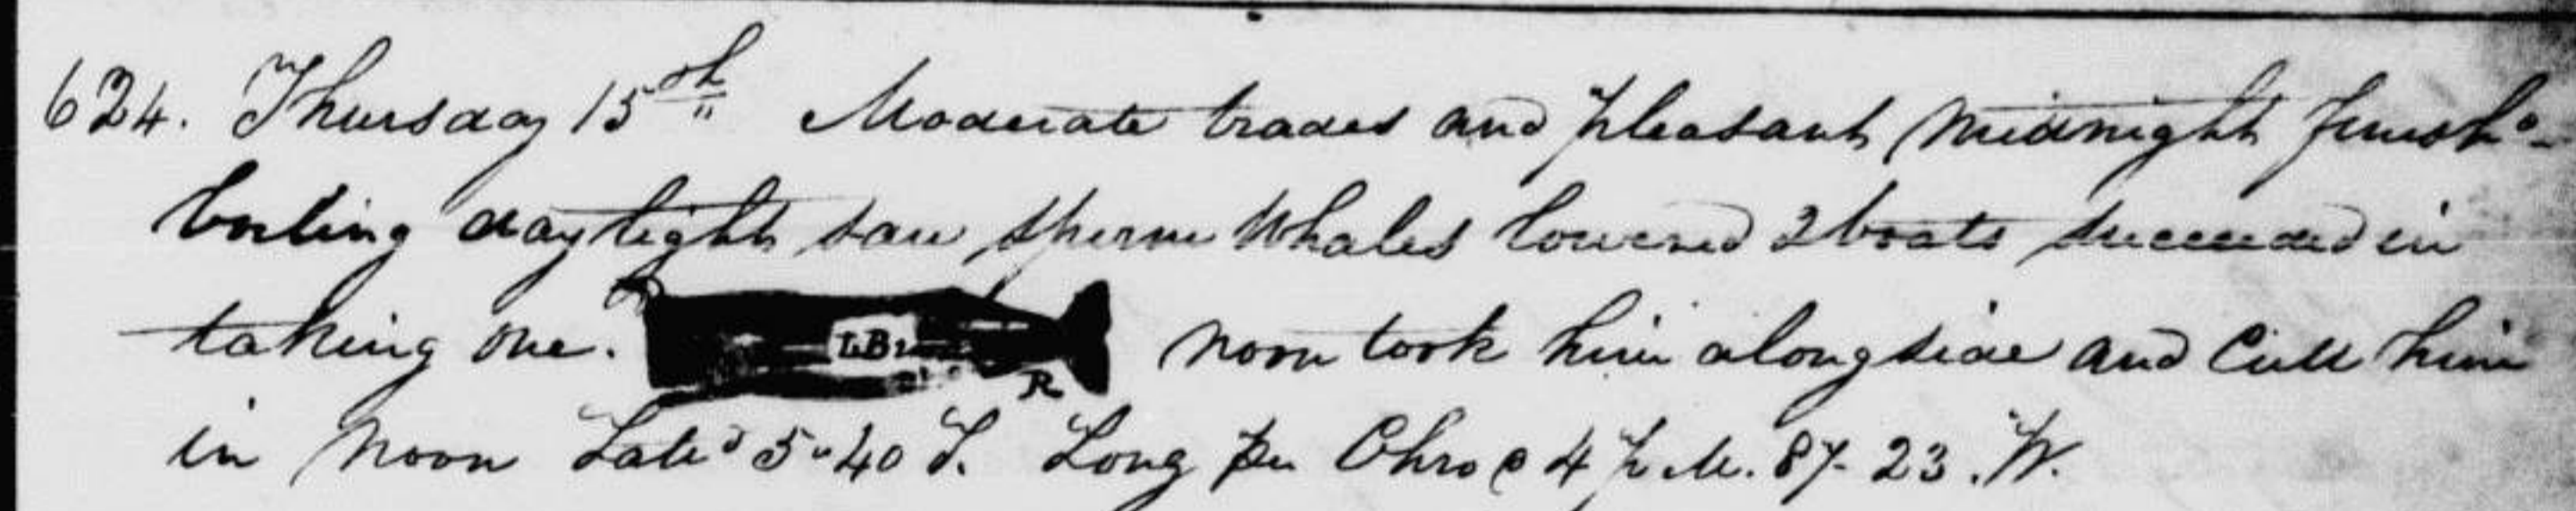 624. Thursday 15th Moderate trades and pleasant Midnight finishd
boiling daylight saw sperm Whales lowered 3 boats succeeded in
taking one. LB R Noon took him alongside and Cutt him
in Noon Latd 5"40 S. Long per Chro @ 4 P.M. 87-23.W.